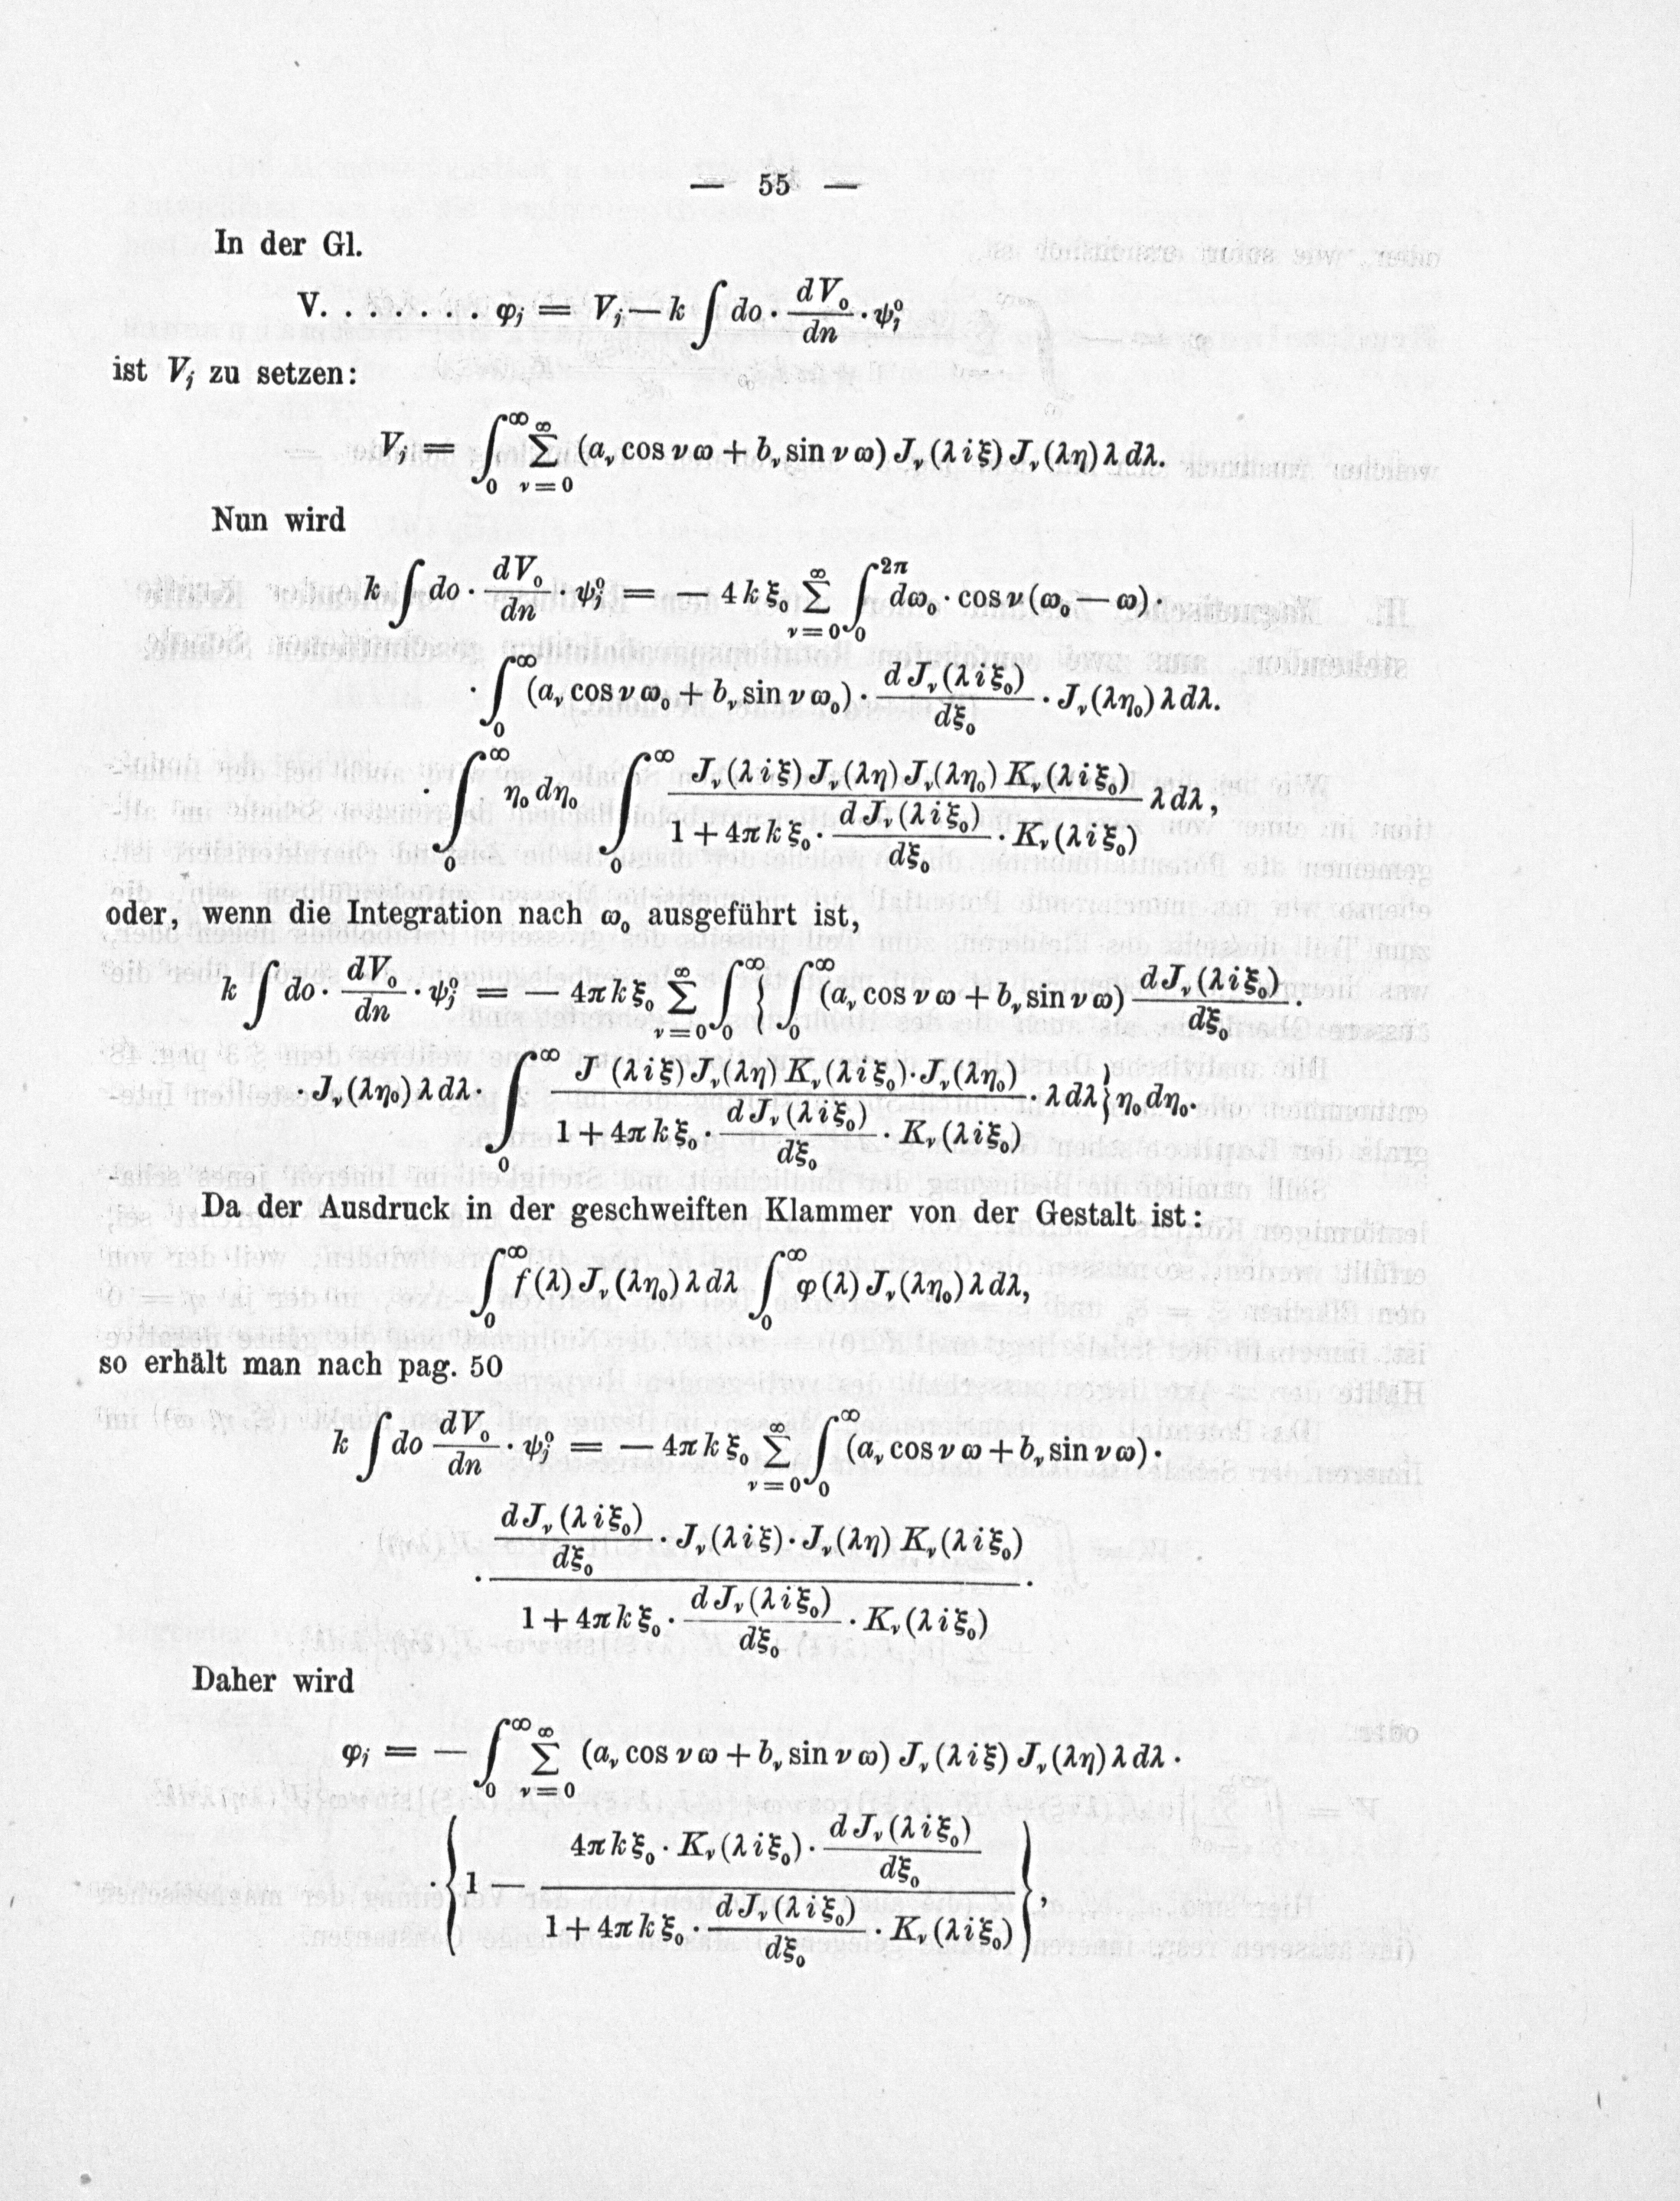 — 55 —
In der Gl.
V. . . . . . . . φ_j = V_j — k ∫ do · dV_0/dn · ψ_j^0
ist V_j zu setzen:
V_j = ∫_0^∞ Σ_{ν=0}^∞ (a_ν cos ν ω + b_ν sin ν ω) J_ν (λ i ξ) J_ν (λη) λ dλ.
Nun wird
k ∫ do · dV_0/dn · ψ_j^0 = — 4 k ξ_0 Σ_{ν=0}^∞ ∫_0^{2π} dω_0 · cos ν (ω_0 — ω) ·
· ∫_0^∞ (a_ν cos ν ω_0 + b_ν sin ν ω_0) · d J_ν (λ i ξ_0)/dξ_0 · J_ν (λη_0) λ dλ.
· ∫_0^∞ η_0 dη_0 ∫_0^∞ [J_ν (λ i ξ) J_ν (λη) J_ν (λη_0) K_ν (λ i ξ_0)] / [1 + 4π k ξ_0 · d J_ν (λ i ξ_0)/dξ_0 · K_ν (λ i ξ_0)] λ dλ,
oder, wenn die Integration nach ω_0 ausgeführt ist,
k ∫ do · dV_0/dn · ψ_j^0 = — 4π k ξ_0 Σ_{ν=0}^∞ ∫_0^∞ { ∫_0^∞ (a_ν cos ν ω + b_ν sin ν ω) d J_ν (λ i ξ_0)/dξ_0 ·
· J_ν (λη_0) λ dλ · ∫_0^∞ [J (λ i ξ) J_ν (λη) K_ν (λ i ξ_0) · J_ν (λη_0)] / [1 + 4π k ξ_0 · d J_ν (λ i ξ_0)/dξ_0 · K_ν (λ i ξ_0)] · λ dλ } η_0 dη_0.
Da der Ausdruck in der geschweiften Klammer von der Gestalt ist:
∫_0^∞ f (λ) J_ν (λη_0) λ dλ ∫_0^∞ φ (λ) J_ν (λη_0) λ dλ,
so erhält man nach pag. 50
k ∫ do dV_0/dn · ψ_j^0 = — 4π k ξ_0 Σ_{ν=0}^∞ ∫_0^∞ (a_ν cos ν ω + b_ν sin ν ω) ·
· [d J_ν (λ i ξ_0)/dξ_0 · J_ν (λ i ξ) · J_ν (λη) K_ν (λ i ξ_0)] / [1 + 4π k ξ_0 · d J_ν (λ i ξ_0)/dξ_0 · K_ν (λ i ξ_0)] ·
Daher wird
φ_j = — ∫_0^∞ Σ_{ν=0}^∞ (a_ν cos ν ω + b_ν sin ν ω) J_ν (λ i ξ) J_ν (λη) λ dλ ·
· { 1 — [4π k ξ_0 · K_ν (λ i ξ_0) · d J_ν (λ i ξ_0)/dξ_0] / [1 + 4π k ξ_0 · d J_ν (λ i ξ_0)/dξ_0 · K_ν (λ i ξ_0)] },